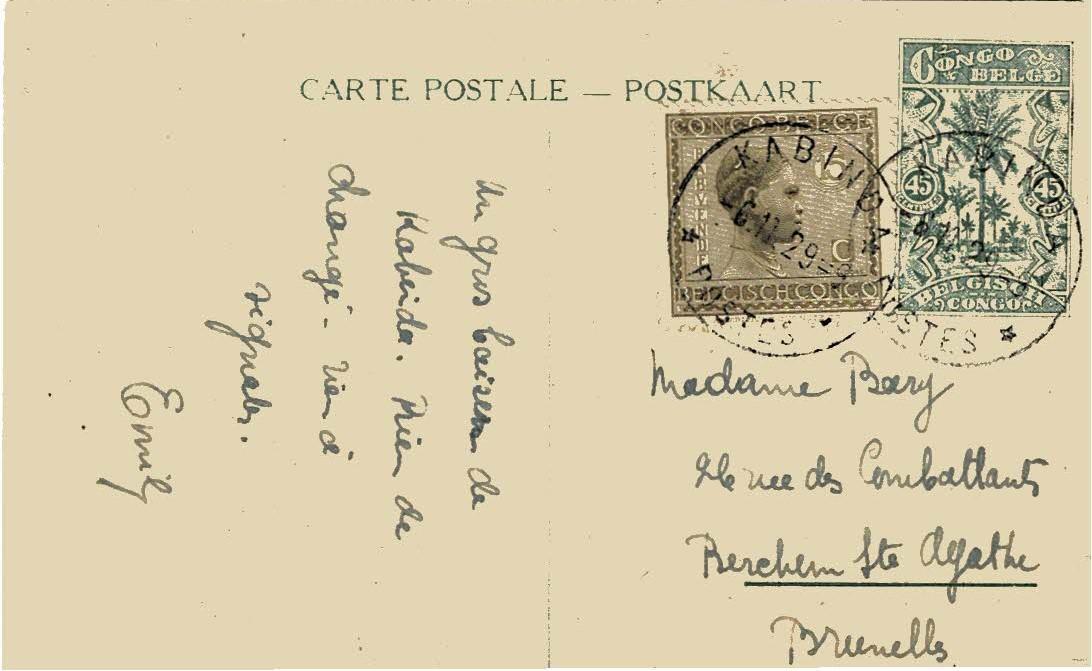 CARTE POSTALE — POSTKAART
CONGO BELGE
15
C
BELGISCH CONGO
CONGO BELGE
45
45
BELGISCH CONGO
KABINDA
-6.11.29-9
POSTES
KABINDA
POSTES
Un gros baiser de
Kabinda. Rien de
changé. rien à
signaler.
Emily
Madame Bary
rue des Combattants
Berchem Ste Agathe
Bruxelles